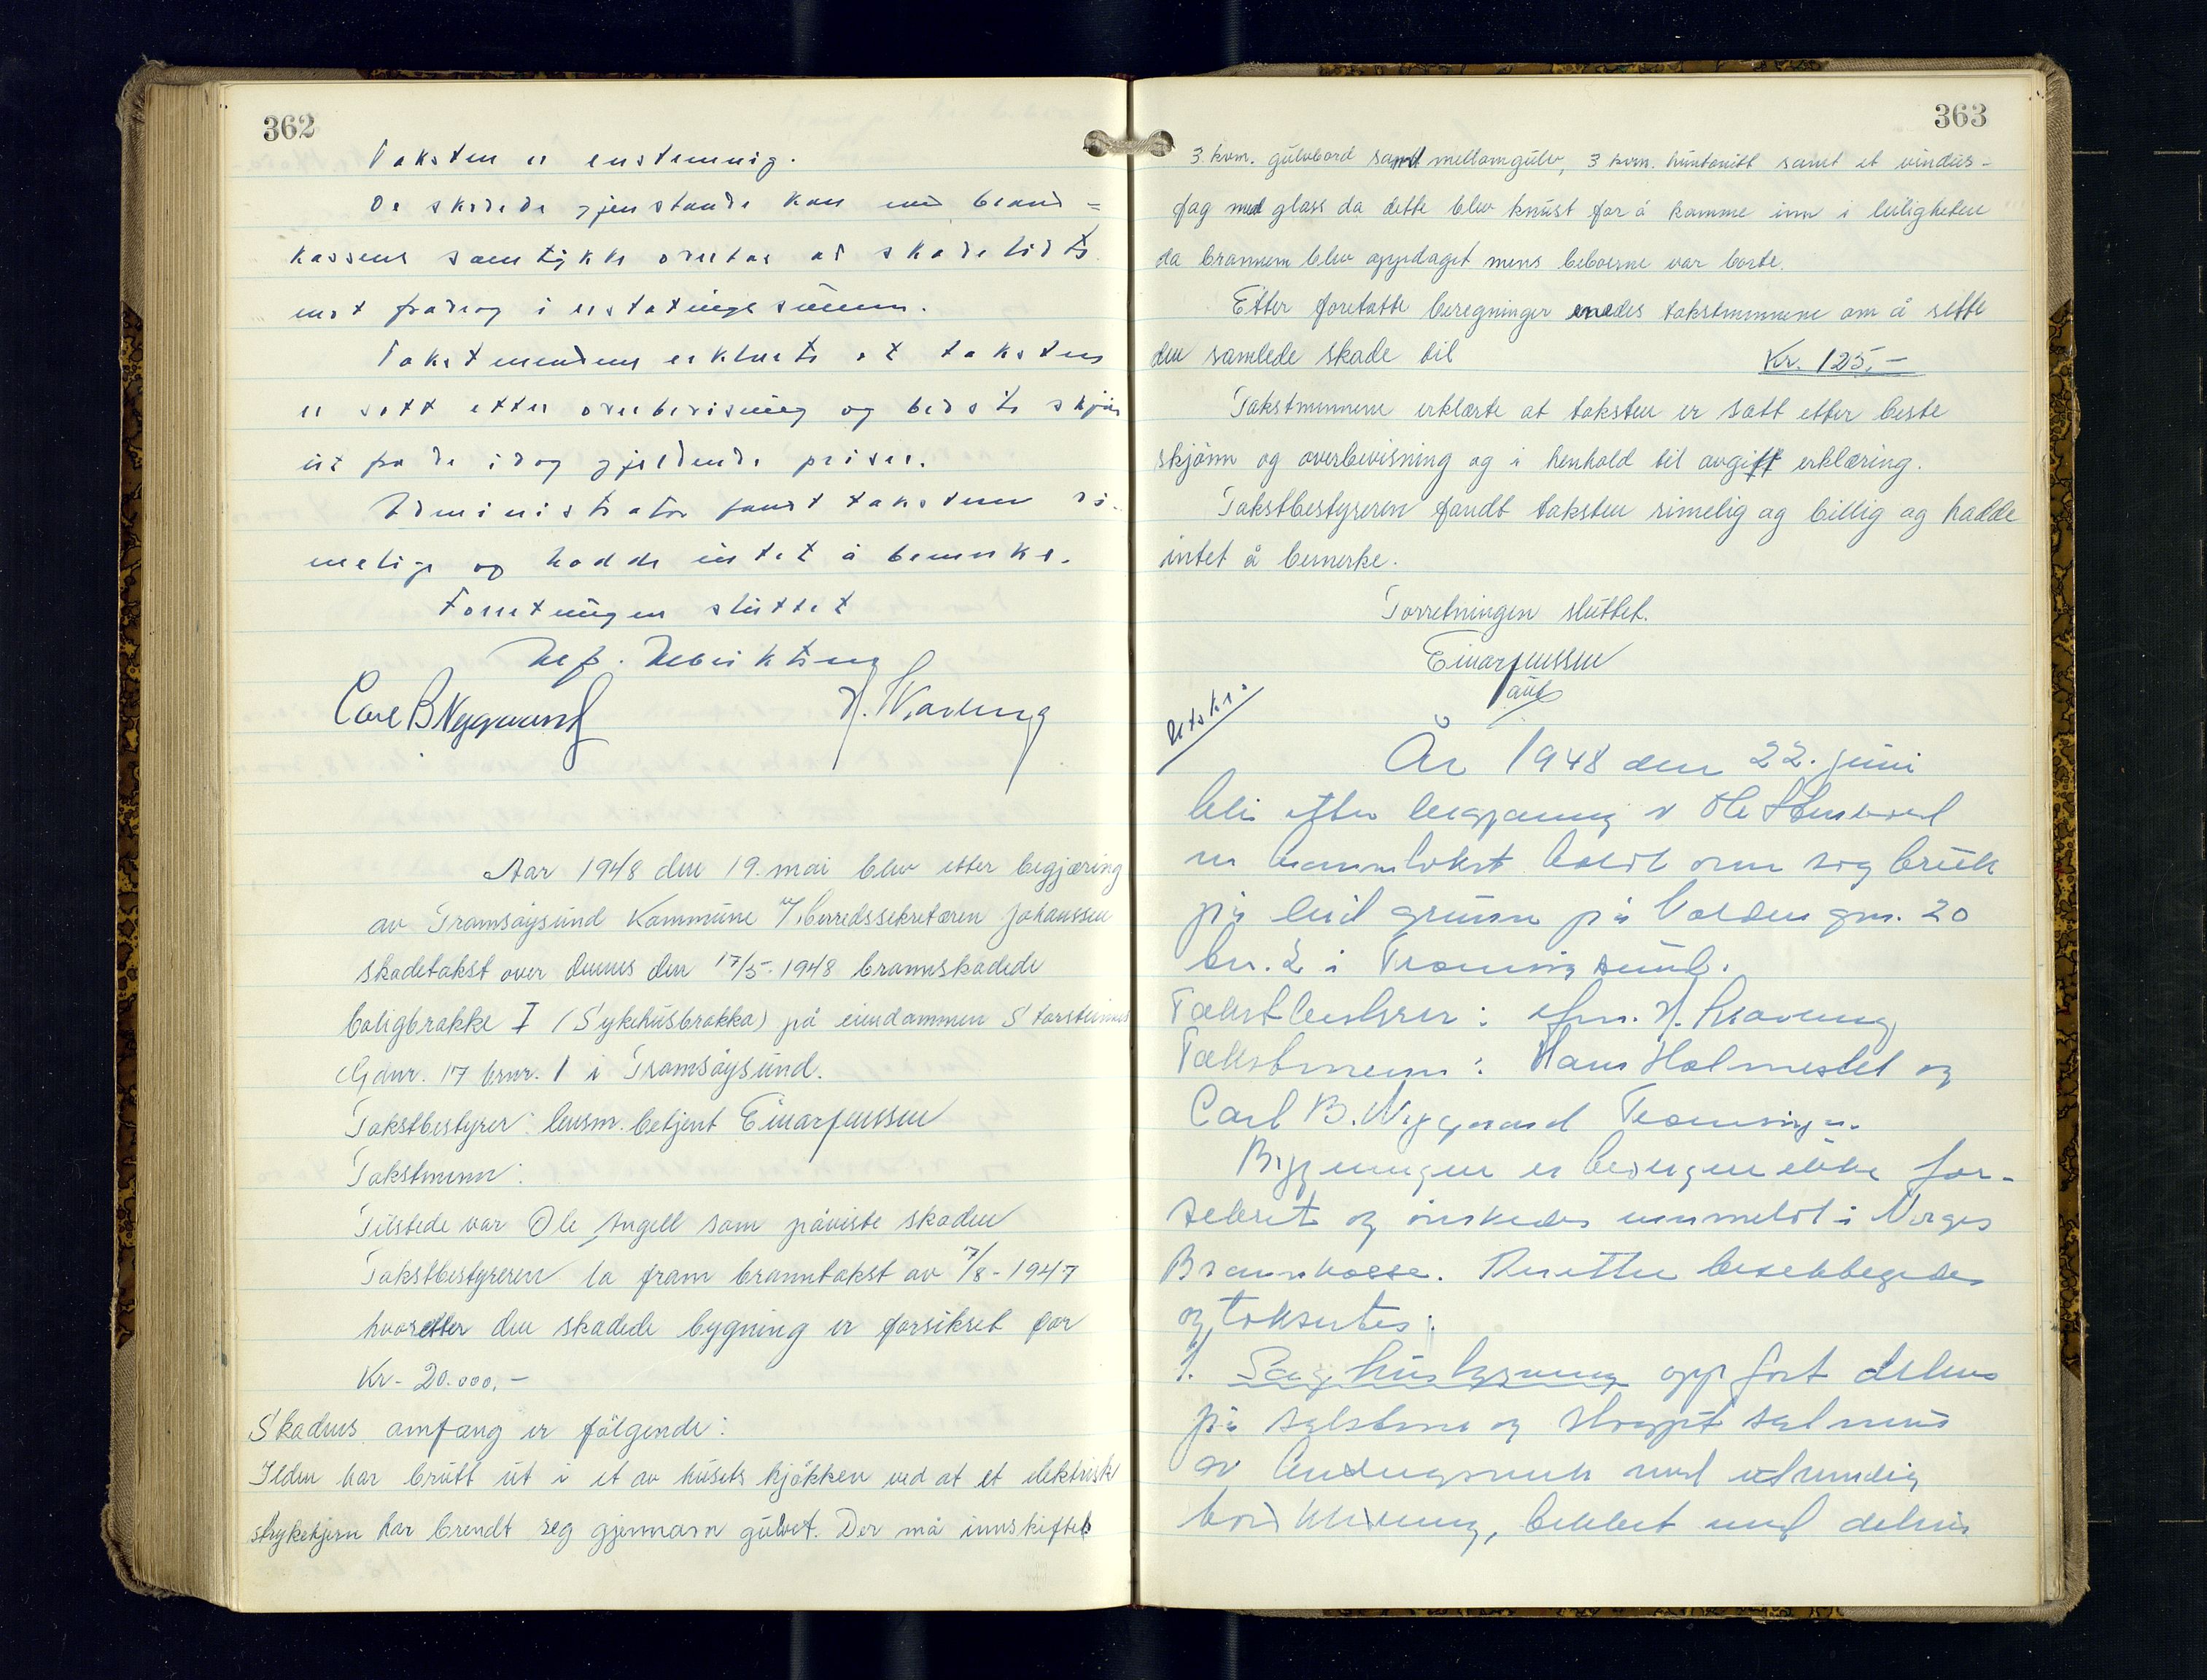 362
Taksten er enstemmig.
De skadede gjenstande kan med brand=
kassens samtykke overtas av skadelidte
mot fradrag i erstatningssummen.
Takstmendene erklærte at taksten
er satt etter overbevisning og bedste skjøn
ut fra de idag gjeldende priser.
Administrator fandt taksten ri-
melig og hadde intet å bemerke.
Forretningen sluttet
Carl B Nygaard
Aar 1948 den 19. mai blev etter begjæring
av Tromsøysund Kommune v/herredssekretæren Johanssen
skadetakst over dennes den 17/5-1948 brannskadede
boligbrakke I (Sykehusbrakka) på eiendommen Storsteinnes
Gdnr. 17 brnr. 1 i Tromsøysund.
Takstbestyrer: lensm. betjent Einar Jenssen
Takstmenn:
Tilstede var Ole Angell som påviste skaden
Takstbestyreren la fram branntakst av 7/8-1947
hvoretter den skadede bygning er forsikret for
Kr. 20.000,-
Skadens omfang er følgende:
Ilden har brutt ut i et av husets kjøkken ved at et elektrisk
strykejern har brendt seg gjennom gulvet. Der må innskiftes
363
3 kvm. gulvbord samt mellomgulv, 3 kvm. huntonitt samt et vindus-
fag med glass da dette blev knust for å komme inn i leiligheten
da brannen blev oppdaget mens beboerne var borte.
Etter foretatte beregninger enedes takstmennene om å sette
den samlede skade til Kr. 125,-
Takstmennene erklærte at taksten er satt etter beste
skjønn og overbevisning og i henhold til avgitt erklæring.
Takstbestyreren fandt taksten rimelig og billig og hadde
intet å bemerke.
Forretningen sluttet.
Einar Jenssen
aut
Utskr.
År 1948 den 22. juni
blei etter begjæring av Ole
en branntakst holdt over sag bruk
på leid grunn på gnr. 20
bnr. 2 i Tromsøysund.
Takstbestyrer: H.
Takstmenn: Hans Holmeslet og
Carl B. Nygaard Tromsøysu.
Bygningen er ikke for-
sikret og ønskedes innmeldt i Norges
Brannkasse. Deretter besiktigedes
og taksertes:
1. Saghusbygning oppført delvis
på og
av med utvendig
bordkledning, tekket med delvis